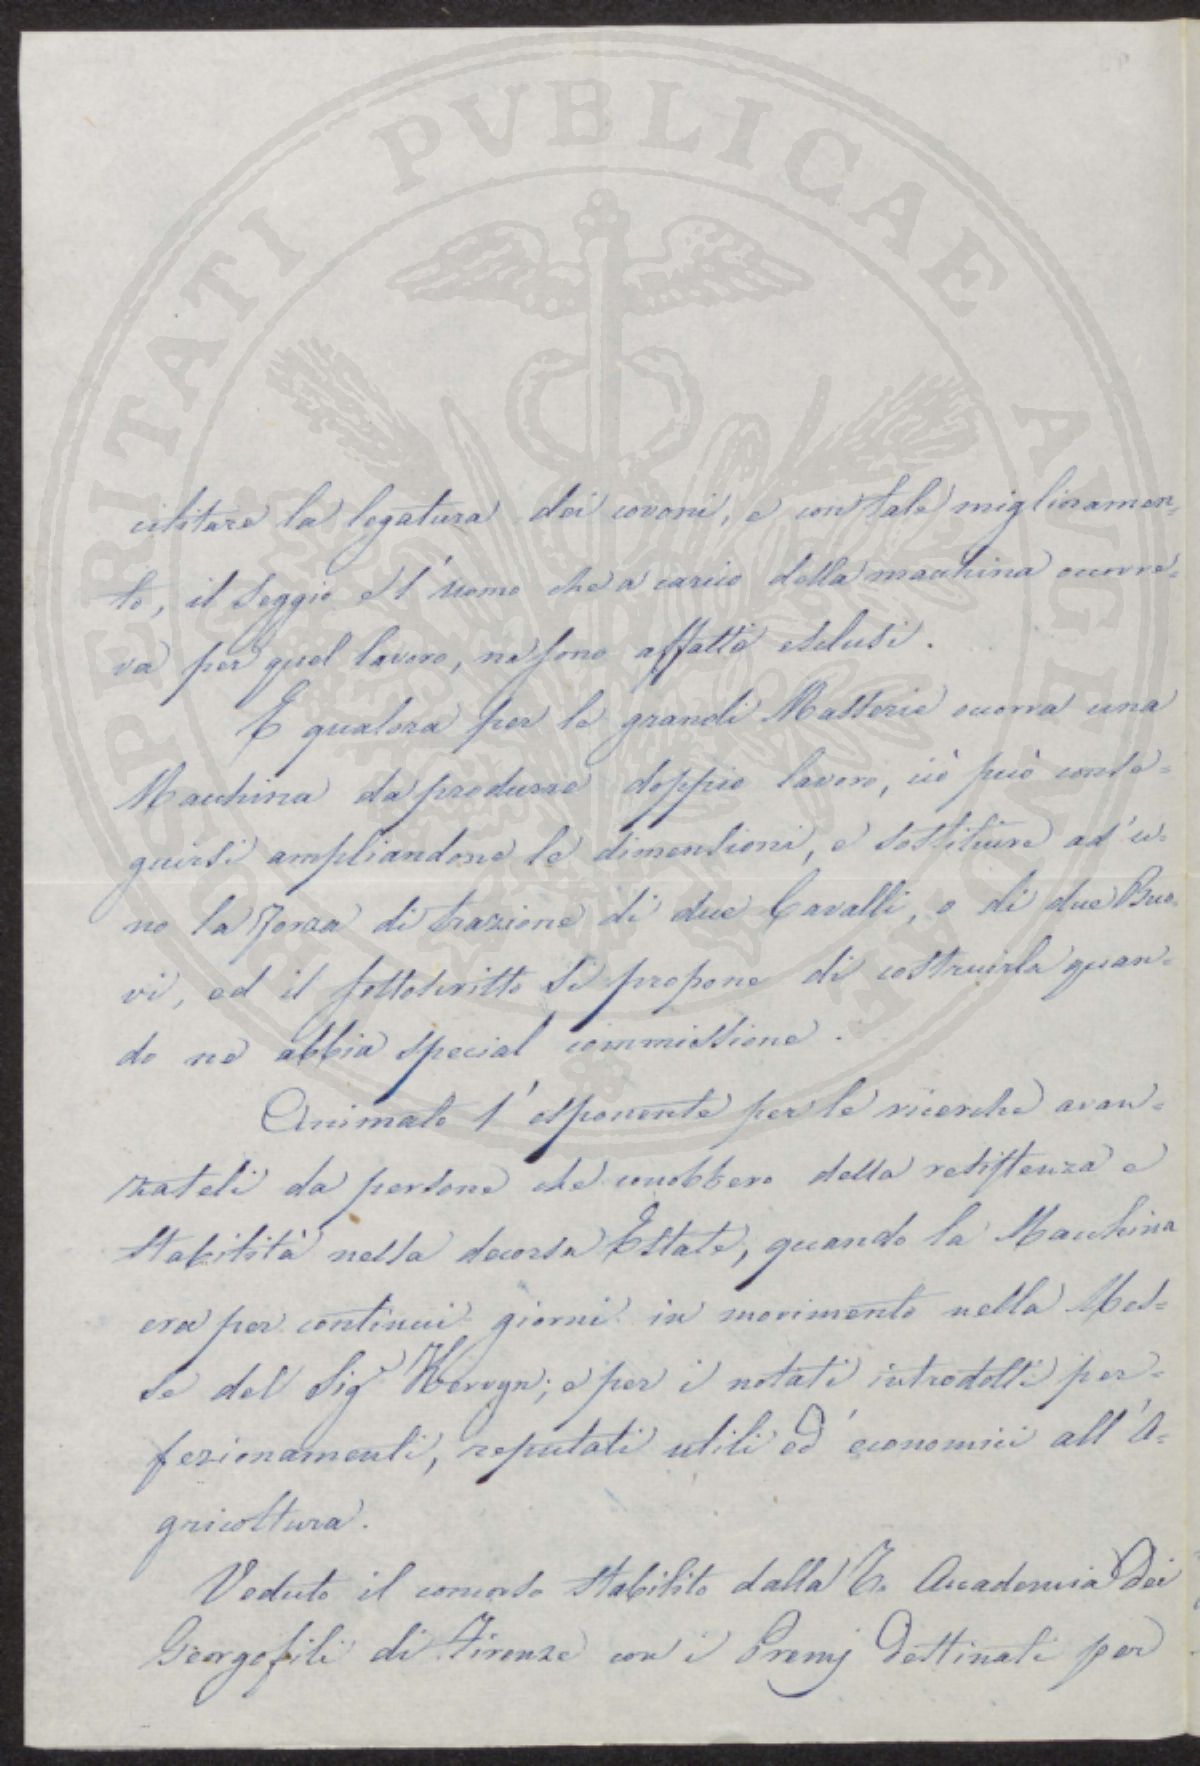 PROSPERITATI PVBLICAE AVGENDAE
cilitare la legatura dei covoni, e con tale miglioramen=
to, il seggio e l'uomo che a carico della macchina occorre=
va per quel lavoro, ne sono affatto esclusi.
E qualora per le grandi Masserie occorra una
Macchina da produrre doppio lavoro, ciò può conse=
guirsi ampliandone le dimensioni, e sostituire ad'u=
no la Forza di trazione di due Cavalli, o di due Buo=
vi, ed il sottoscritto si propone di costruirla quan=
do ne abbia special commissione.
Animato l'esponente per le ricerche avan=
zateli da persone che conobbero della resistenza e
stabilità nella decorsa Estate, quando la Macchina
era per continui giorni in movimento nella Mes=
se del Sig.r; e per i notati introdotti per=
fezionamenti, reputati utili ed' economici all'A=
gricoltura.
Veduto il concorso stabilito dalla Accademia Dei
Georgofili di Firenze con i Premj Destinati per